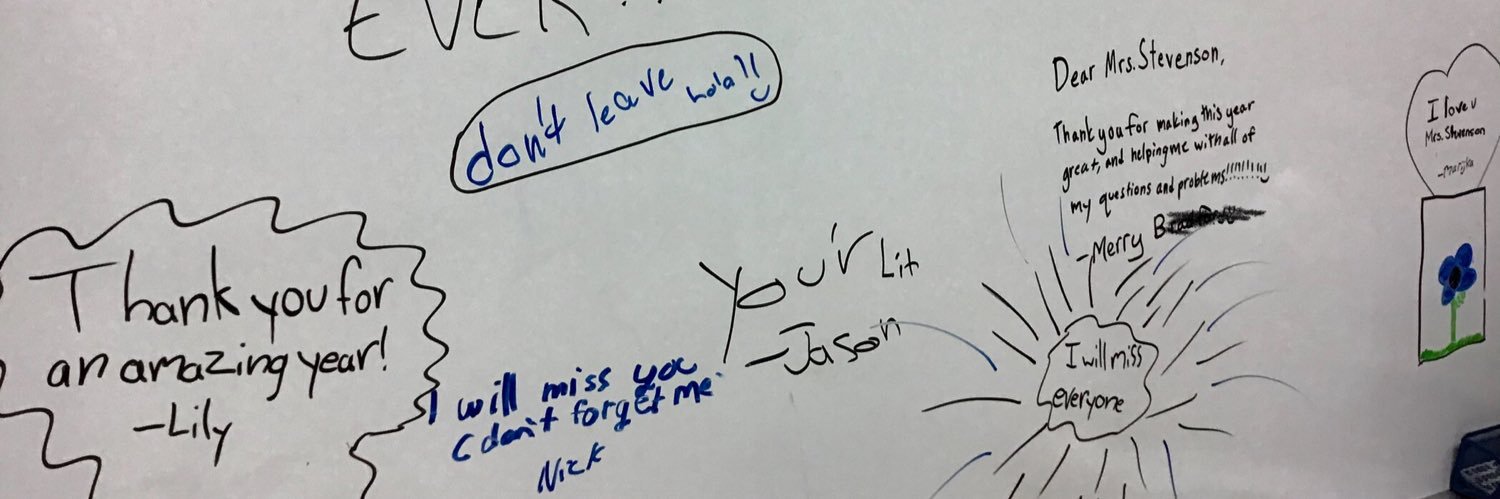 EVER
don't leave
hola!!
Dear Mrs. Stevenson,
Thank you for making this year
great, and helping me with all of
my questions and problems!!!!!!!!!
-Merry
I love u
Mrs. Stevenson
-Marijka
Thank you for
an amazing year!
-Lily
You'r Lit
-Jason
I will miss you
(don't forget me
Nick
I will miss
everyone